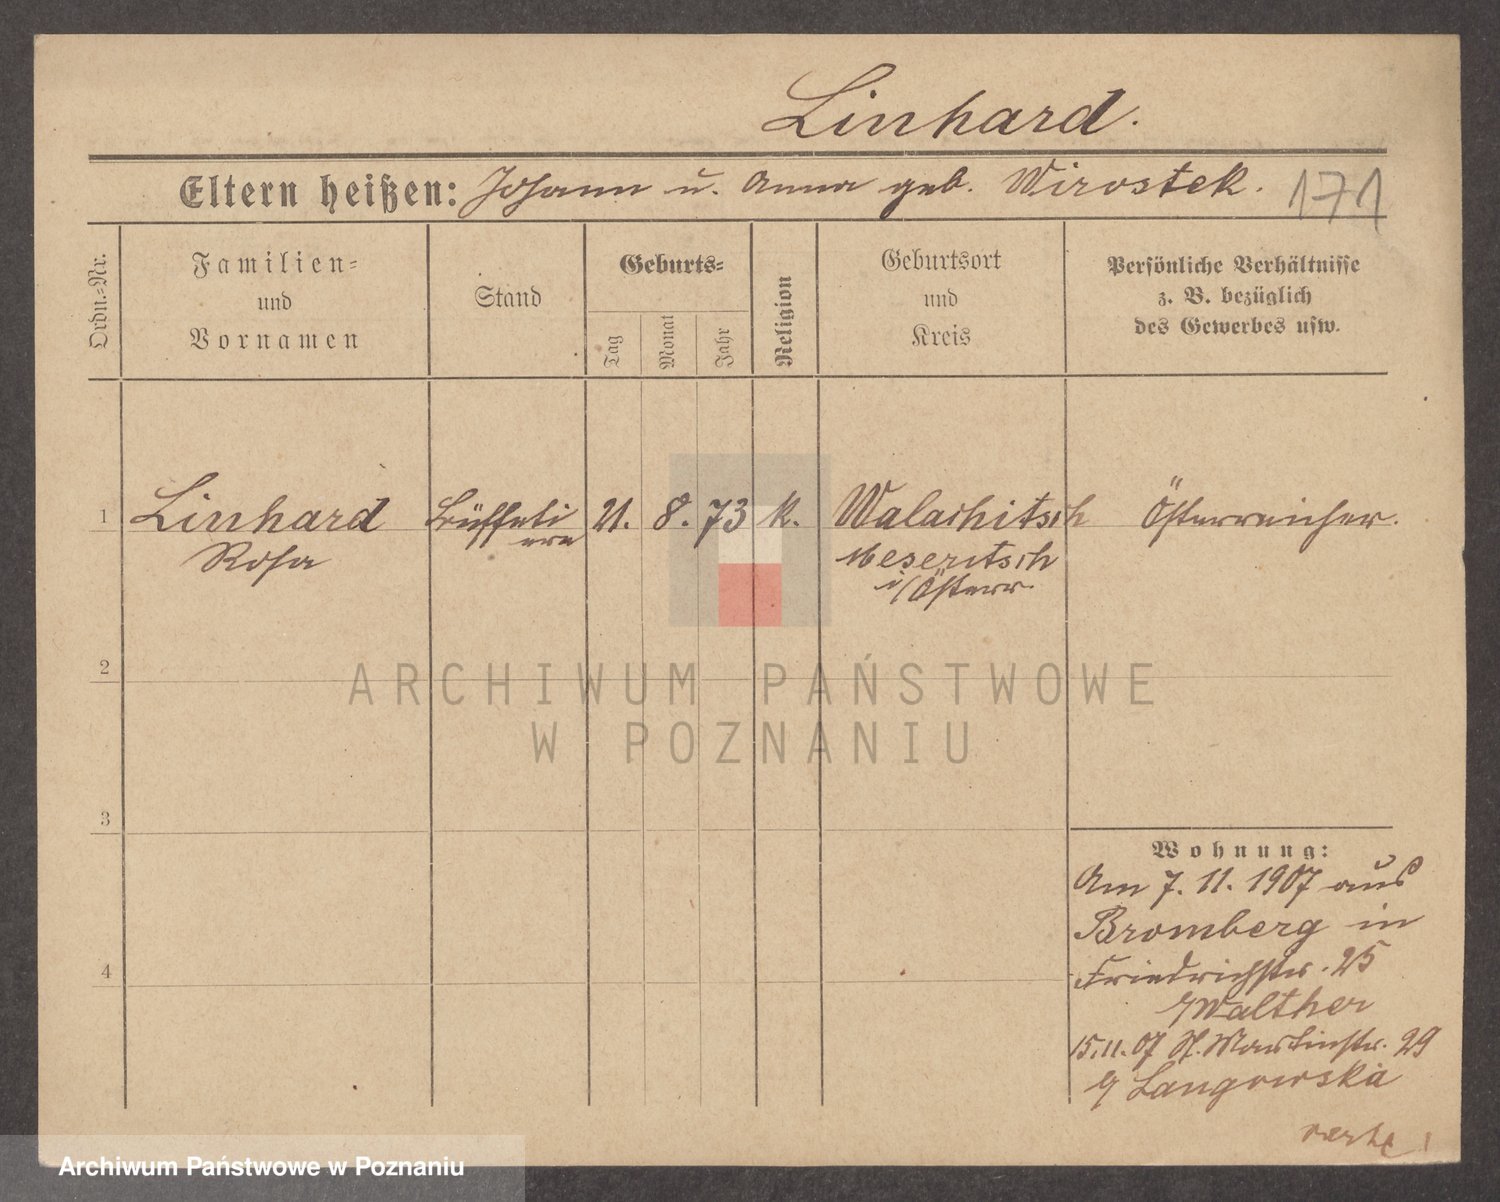 Linhard.
Eltern heißen: Johann u. Anna geb. Wirostek.
171
Ordn.-Nr.
Familien-
und
Vornamen
Stand
Geburts-
Tag
Monat
Jahr
Religion
Geburtsort
und
Kreis
Persönliche Verhältnisse
z. B. bezüglich
des Gewerbes usw.
1 Linhard Büffeti 21. 8. 73 k. Walachitsch Österreicher.
Rosa ere Meseritsch
i/Österr.
2
3
4
Wohnung:
Am 7. 11. 1907 aus
Bromberg in
Friedrichstr. 25
b/Walther
15.11.07 St. Martinstr. 29
b/ Langowska
ARCHIWUM PAŃSTWOWE
W POZNANIU
Archiwum Państwowe w Poznaniu